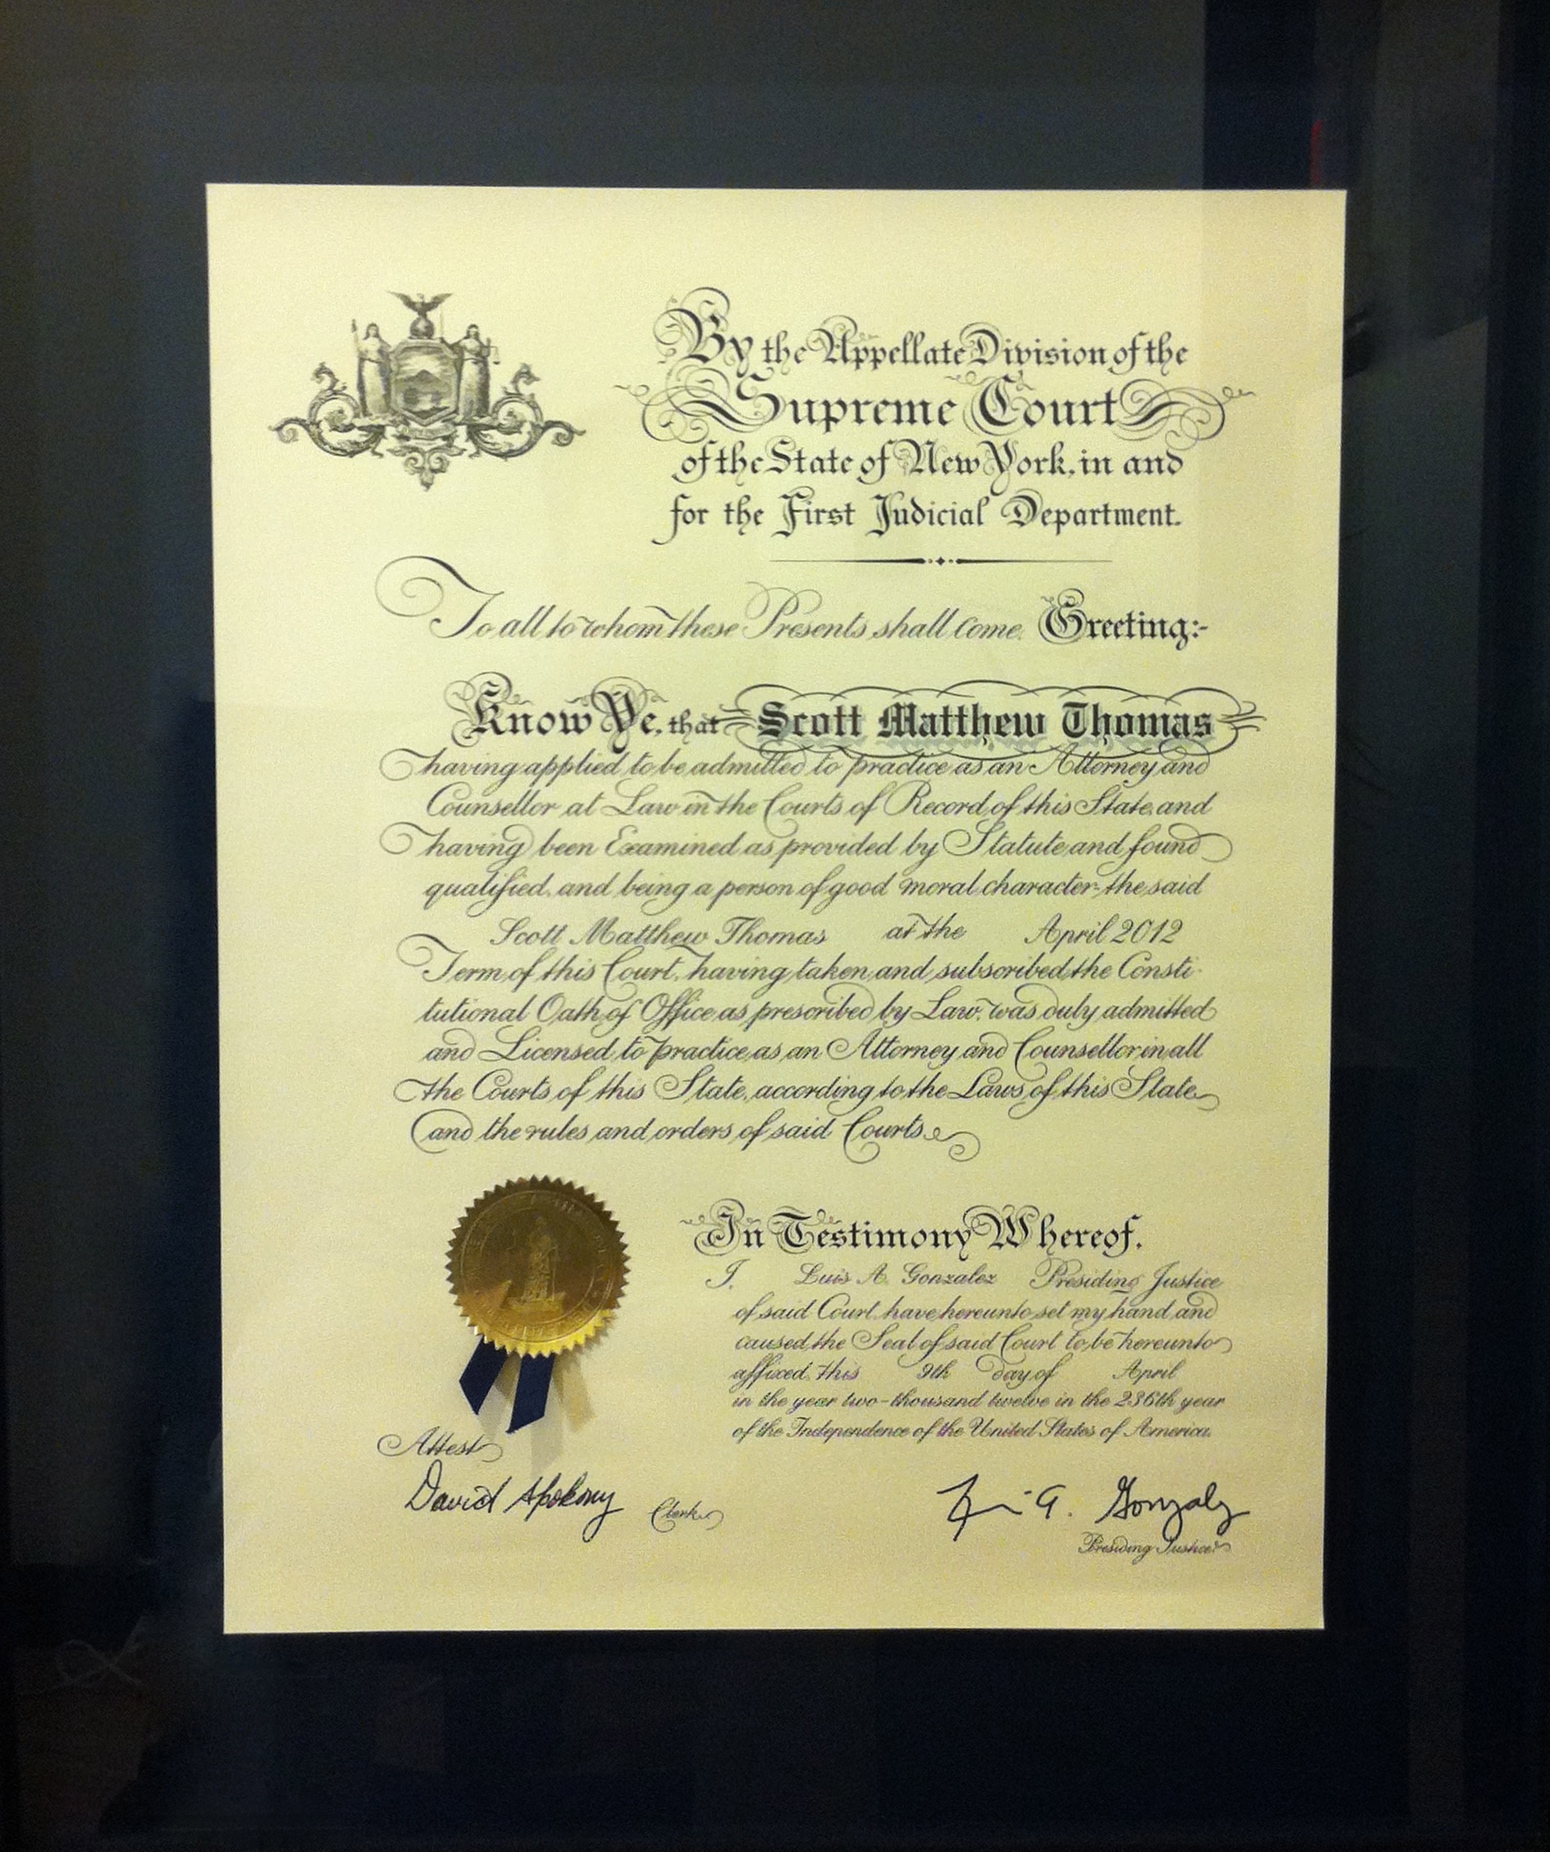 By the Appellate Division of the
Supreme Court
of the State of New York, in and
for the First Judicial Department.
To all to whom these Presents shall come, Greeting:-
Know Ye, that Scott Matthew Thomas
having applied to be admitted to practice as an Attorney and
Counsellor at Law in the Courts of Record of this State, and
having been Examined as provided by Statute and found
qualified, and being a person of good moral character, the said
Scott Matthew Thomas at the April 2012
Term of this Court, having taken and subscribed the Consti-
tutional Oath of Office as prescribed by Law, was duly admitted
and Licensed to practice as an Attorney and Counsellor in all
the Courts of this State, according to the Laws of this State
and the rules and orders of said Courts.
In Testimony Whereof,
I, Luis A. Gonzalez Presiding Justice
of said Court, have hereunto set my hand and
caused the Seal of said Court to be hereunto
affixed, this 9th day of April
in the year two-thousand twelve in the 236th year
of the Independence of the United States of America.
Attest
David Apokony Clerk
Luis A. Gonzalez
Presiding Justice